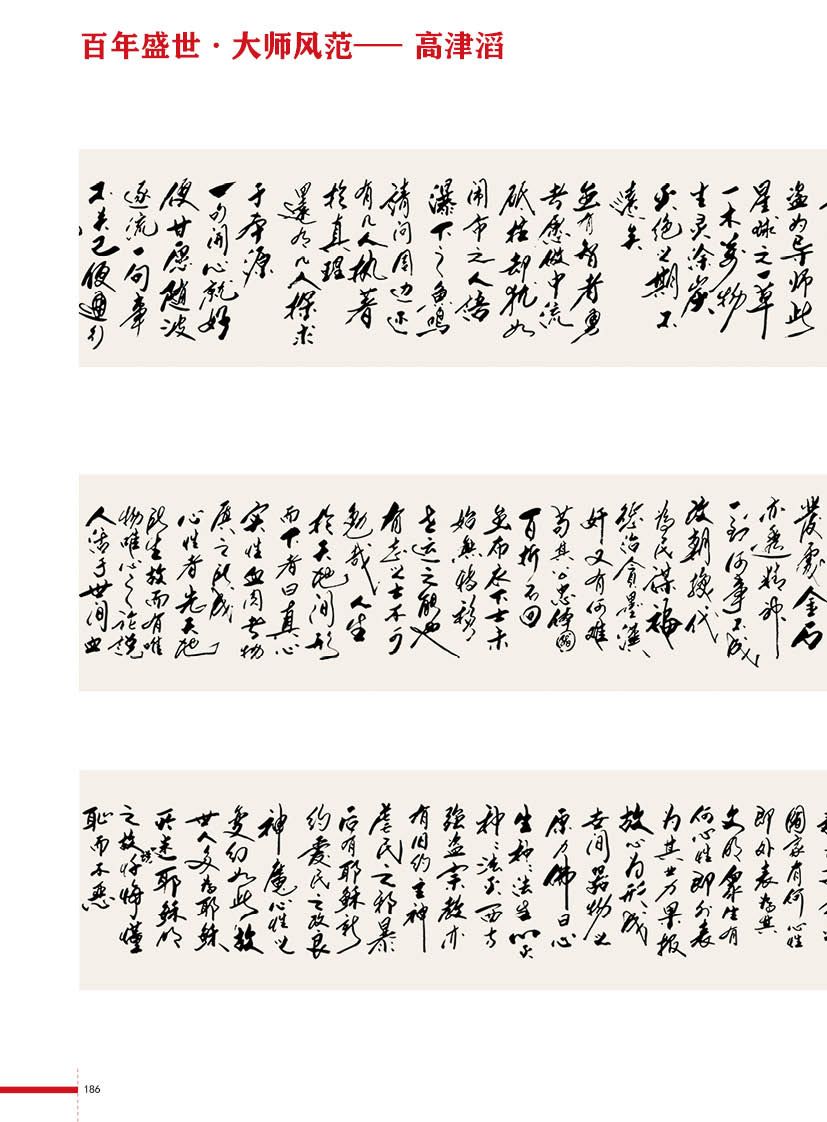 百年盛世·大师风范—— 高津滔
盗为导师此
星球之一草
一木万物
生灵涂炭
灭绝之期不
远矣
并有智者勇
者愿做中流
砥柱却犹如
闹市之人语
瀑下之鱼鸣
请问周边还
有几人执著
于真理
还有几人探求
于本源
一句开心就好
便甘愿随波
逐流一句事
不关己便
金石
亦
一到何事不成
改朝换代
为民谋福
惩治贪墨
奸又有何难
苟其公忠体国
百折不回
布衣下士未
始无转移
世运之能也
有志之士不可
勉哉人生
于天地间形
而下者曰真心
实性血肉者物
质之所成
心性者先天地
所生故而有唯
物唯心之论说
人活于世间
国家有何心性
即外表为其
文明众生有
何心性即外表
为其世力果报
放心为形成
世间器物之
原乃佛曰心
生种种法生心灭
种种法灭西方
强盗宗教亦
有旧约主神
虐民之邪暴
后有耶稣新
约爱民之改良
神魔心性之
变幻如此故
世人多为耶稣
所迷耶稣
之故忏悔
耻而不恶
186